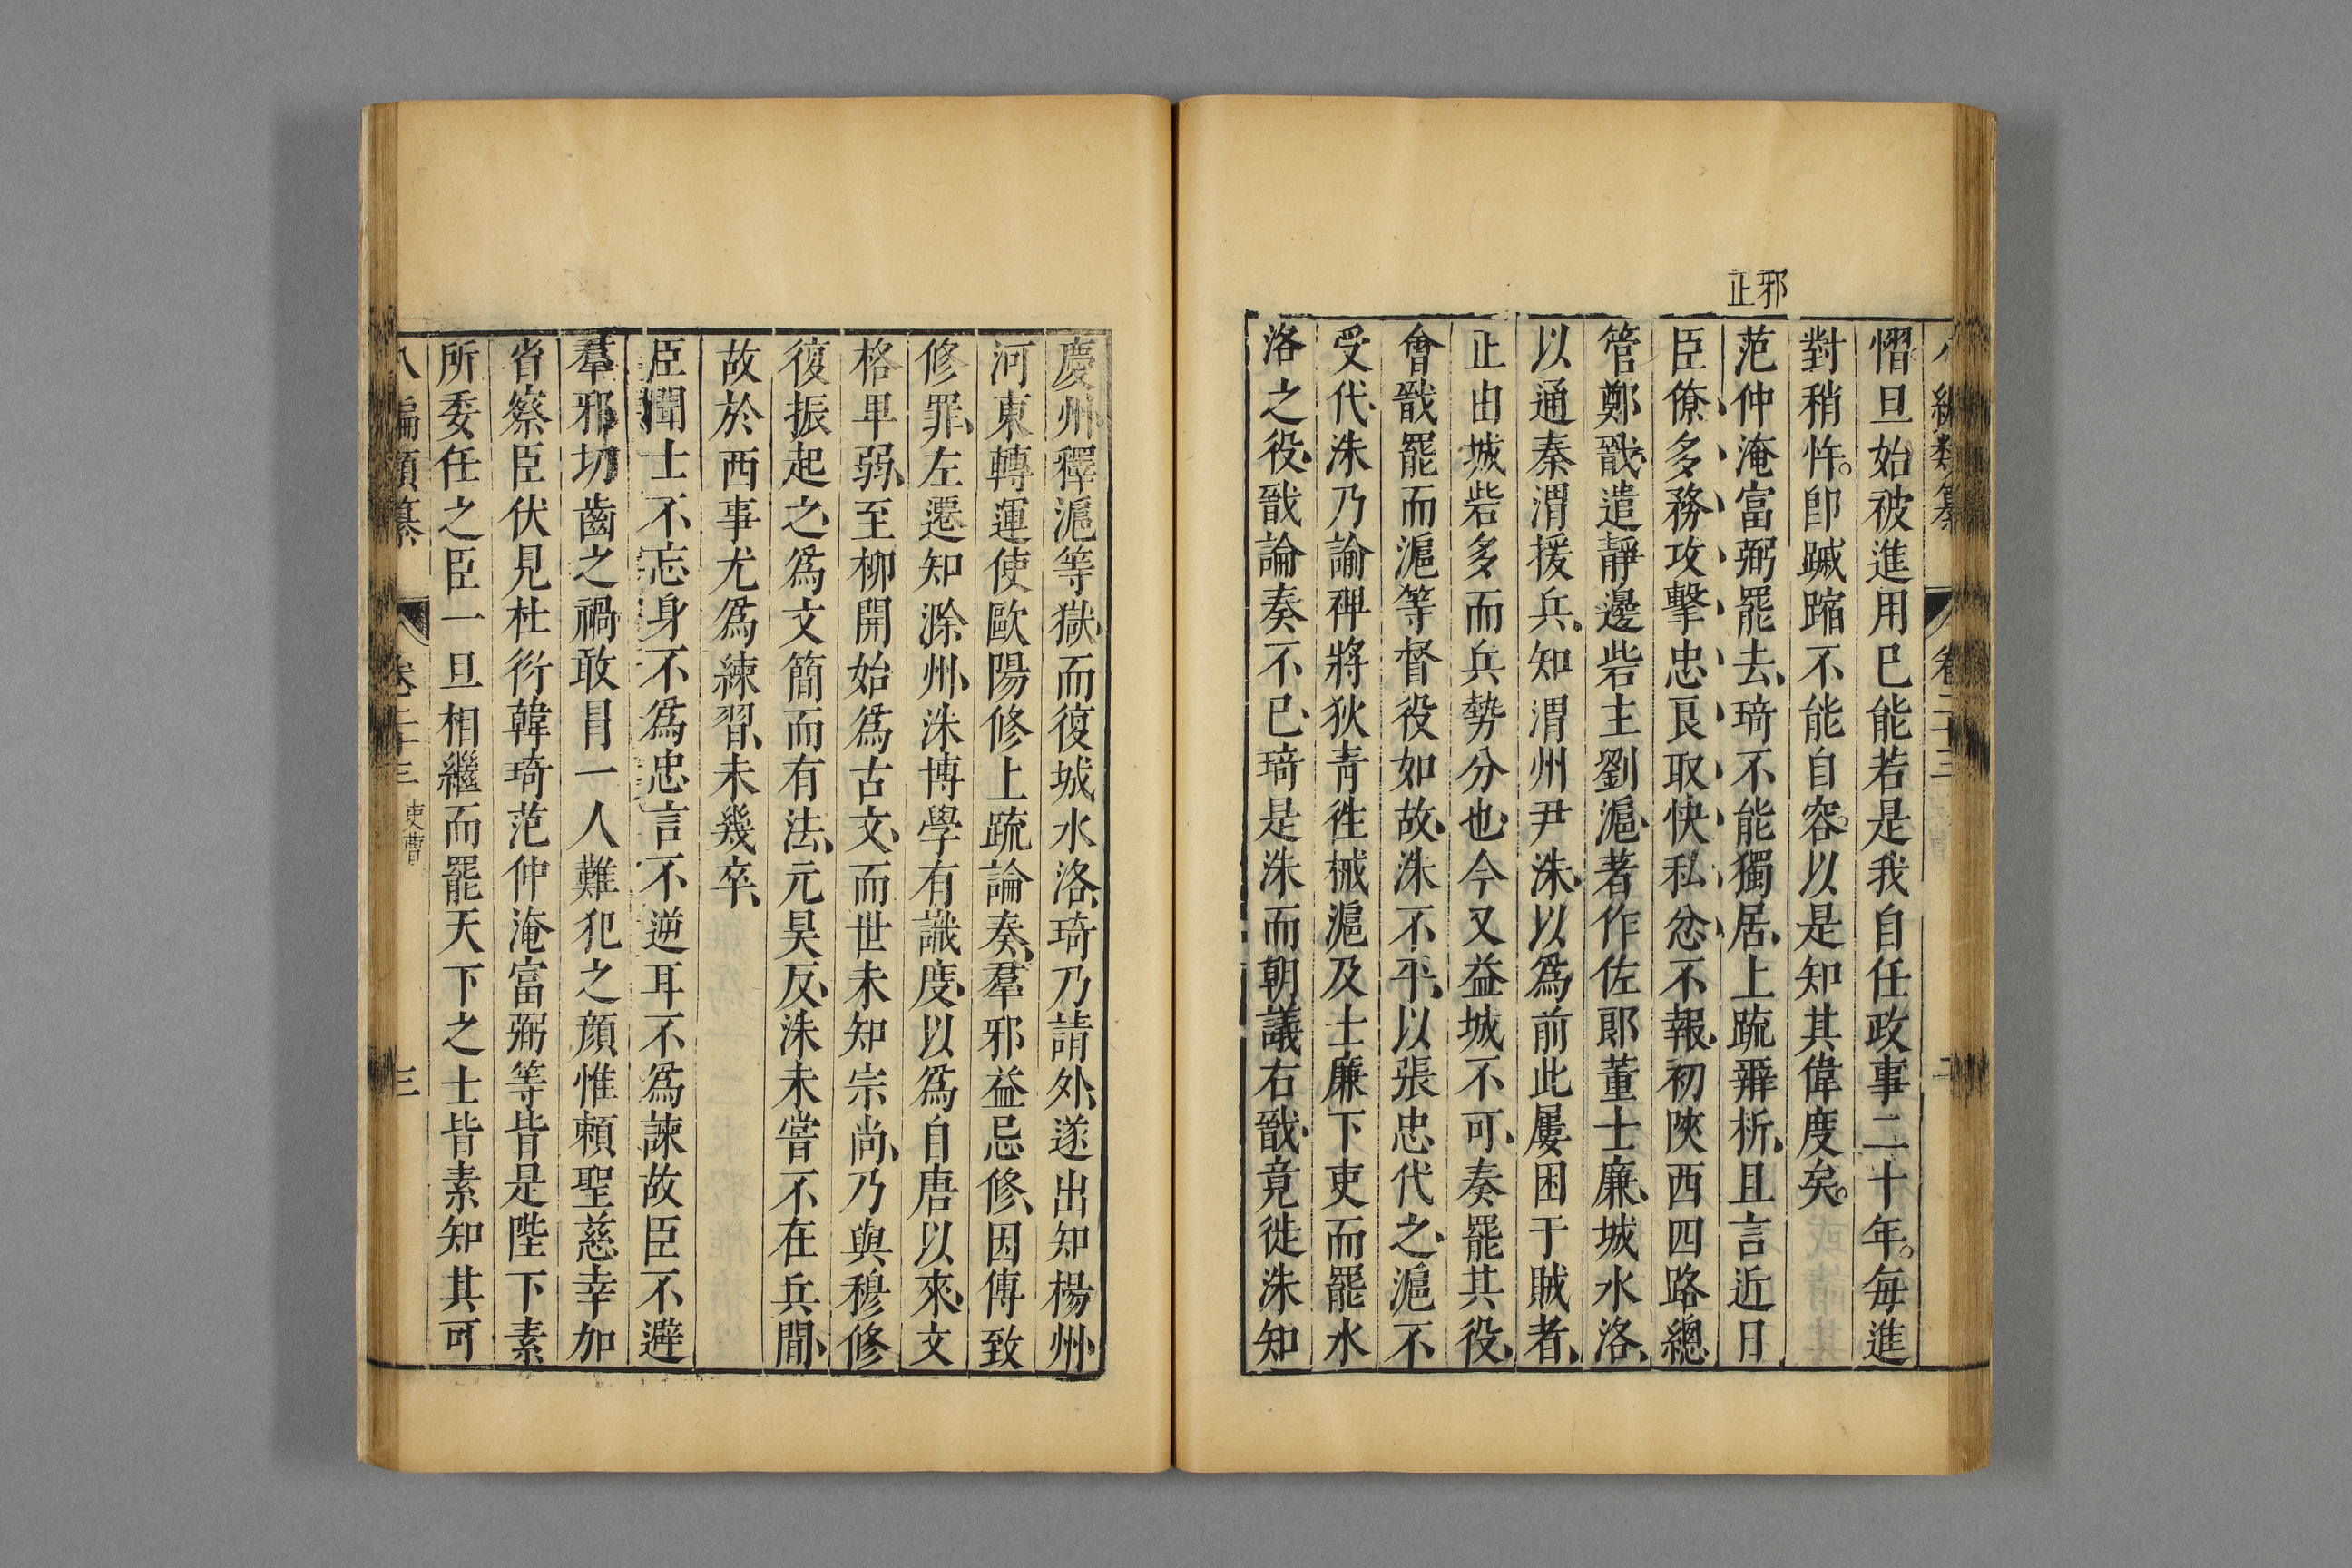 邪正
慴旦始被進用已能若是我自任政事二十年。每進
對稍忤。卽蹴踖不能自容。以是知其偉度矣。
范仲淹富弼罷去、琦不能獨居、上疏辨析、且言近日
臣僚、多務攻擊忠良取快私忿、不報、初陝西四路總
管鄭戩、遣靜邊砦主劉滬、著作佐郎董士廉、城水洛、
以通秦渭援兵、知渭州尹洙、以爲前此屢困于賊者、
正由城砦多而兵勢分也、今又益城不可、奏罷其役、
會戩罷而滬等督役如故、洙不平、以張忠代之、滬不
受代、洙乃諭裨將狄青徃械滬及士廉下吏而罷水
洛之役、戩論奏不已、琦是洙而朝議右戩、竟徙洙知
慶州釋滬等獄、而復城水洛、琦乃請外、遂出知楊州、
河東轉運使歐陽修上疏論奏、羣邪益忌修、因傅致
修罪、左遷知滁州、洙博學有識度、以爲自唐以來、文
格卑弱、至柳開始爲古文、而世未知宗尚、乃與穆修
復振起之、爲文簡而有法、元昊反、洙未嘗不在兵間、
故於西事尤爲練習、未幾卒、
臣聞士不忘身不爲忠言不逆耳不爲諫故臣不避
羣邪切齒之禍敢冐一人難犯之顔惟賴聖慈幸加
省察臣伏見杜衍韓琦范仲淹富弼等皆是陛下素
所委任之臣一旦相繼而罷天下之士皆素知其可
八編類纂 卷二十三 吏曹 三